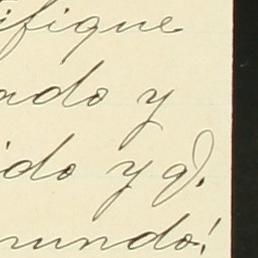 ifique
ado y
ido y D.
mundo!